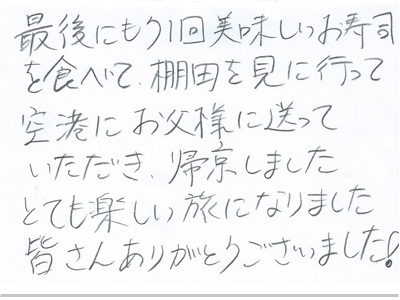 最後にもう1回美味しいお寿司
を食べて、棚田を見に行って
空港にお父様に送って
いただき、帰京しました
とても楽しい旅になりました
皆さんありがとうございました!